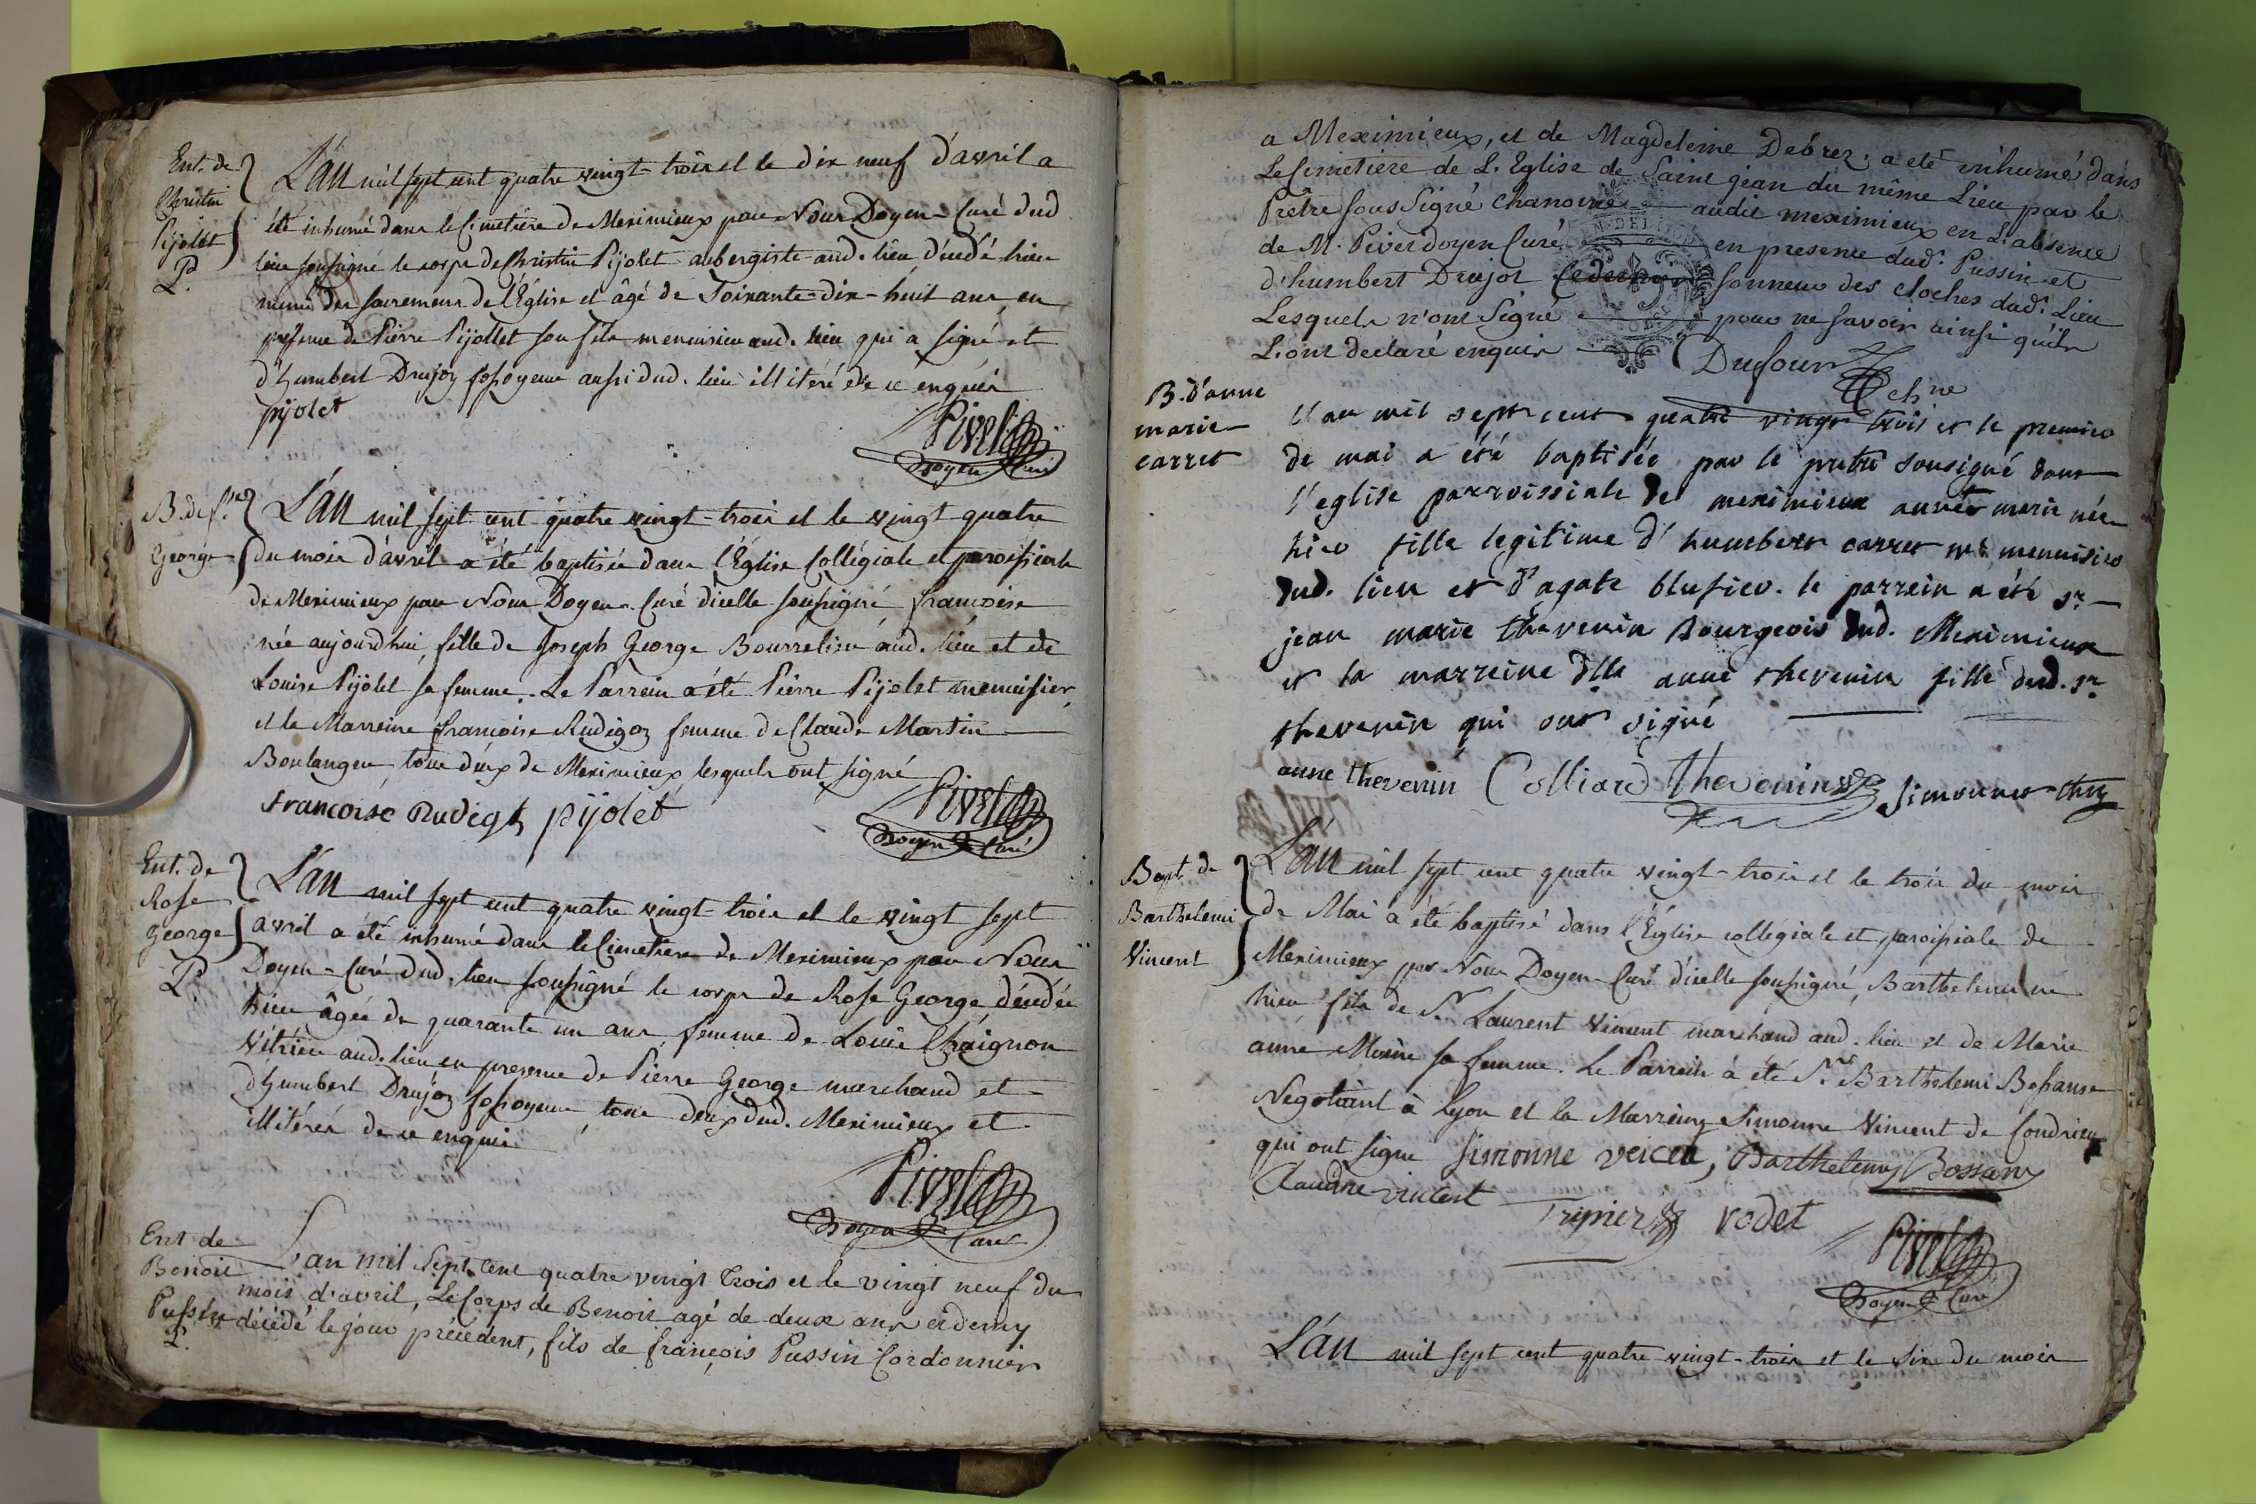 Ent. de
Christin
Pijolet
P.
L'an mil sept cent quatre vingt-trois et le dix neuf d'avril a
été inhumé dans le Cimetière de Meximieux par Nous Doyen-Curé dud.
lieu soussigné le corps de Christin Pijolet aubergiste aud. lieu décédé hier
muni des sacremens de l'Église et âgé de Soixante-dix-huit ans, en
présence de Pierre Pijollet son fils menuisier aud. lieu qui a signé et
d'humbert Drujoz fossoyeur aussi dud. lieu illiteré de ce enquis
pijolet
Pivet
Doyen Curé
B. de f.se
George
L'an mil sept cent quatre vingt-trois et le vingt quatre
du mois d'avril a été baptisée dans l'Église Collégiale et paroissiale
de Meximieux par Nous Doyen-Curé d'icelle soussigné françoise
née aujourdhui, fille de Joseph George Bourrelier aud. lieu et de
Louise Pijolet sa femme. Le Parrein a été Pierre Pijolet menuisier,
et la Marreine françoise Rudigoz femme de Claude Martin
Boulanger, tous deux de Meximieux lesquels ont signé
francoise Rudigz pijolet
Pivet
Doyen Curé
Ent. de
Rose
George
P.
L'an mil sept cent quatre vingt-trois et le vingt sept
avril a été inhumé dans le Cimetiere de Meximieux par Nous
Doyen-Curé dud. lieu soussigné le corps de Rose George, décédée
hier âgée de quarante un ans, femme de Louis Chaignon
Vitrier aud. lieu en presence de Pierre George marchand et
d'humbert Drujoz fossoyeur, tous deux dud. Meximieux et
illitérés de ce enquis
Pivet
Doyen Curé
Ent de
Benoit
Pussin
P.
L'an mil Sept cent quatre vingt trois et le vingt neuf du
mois d'avril, Le Corps de Benoit agé de deux ans et demy
décédé le jour précedent, fils de françois Pussin Cordonnier
a Meximieux, et de Magdeleine Debrez, a eté inhumé dans
Le Cimetiere de L'Eglise de Saint jean du même Lieu par le
Prêtre sous Signé Chanoine audit meximieux en L'absence
de M. Pivet doyen Curé en presence dud. Pussin et
d'humbert Drujot sonneur des cloches dud. Lieu
Lesquels n'ont Signé pour ne savoir ainsi qu'ils
L'ont declaré enquis
Dufour chne
B. d'anne
marie
carret
L'an mil sept cent quatre vingt trois et le premier
de mai a été baptisée par le pretre sousigné dans
l'eglise parroissiale de meximieux anne marie née
hier fille legitime d'humbert carret me menuisier
dud. lieu et d'agate blusier. le parrein a été sr
jean marie thevenin Bourgeois dud. Meximieux
et la marreine dlle anne thevenin fille dud. sr
thevenin qui ont signé
anne thevenin Colliard Thevenin Simonnet
Bapt. de
Barthelemi
Vincent
L'an mil sept cent quatre vingt-trois et le trois du mois
de Mai a été baptisé dans l'Église collégiale et paroissiale de
Meximieux par Nous Doyen-Curé d'icelle soussigné, Barthelemi né
hier, fils de Sr Laurent Vincent marchand aud. lieu et de Marie
anne sa femme. Le Parrein à été Sr Barthelemi Bossans
Négotiant à Lyon et la Marreine Simonne Vincent de Condrieu
qui ont signé Simonne Barthelemy Bossans
Claudine vincent Tripier vodet
Pivet
Doyen Curé
L'an mil sept cent quatre vingt-trois et le six du mois